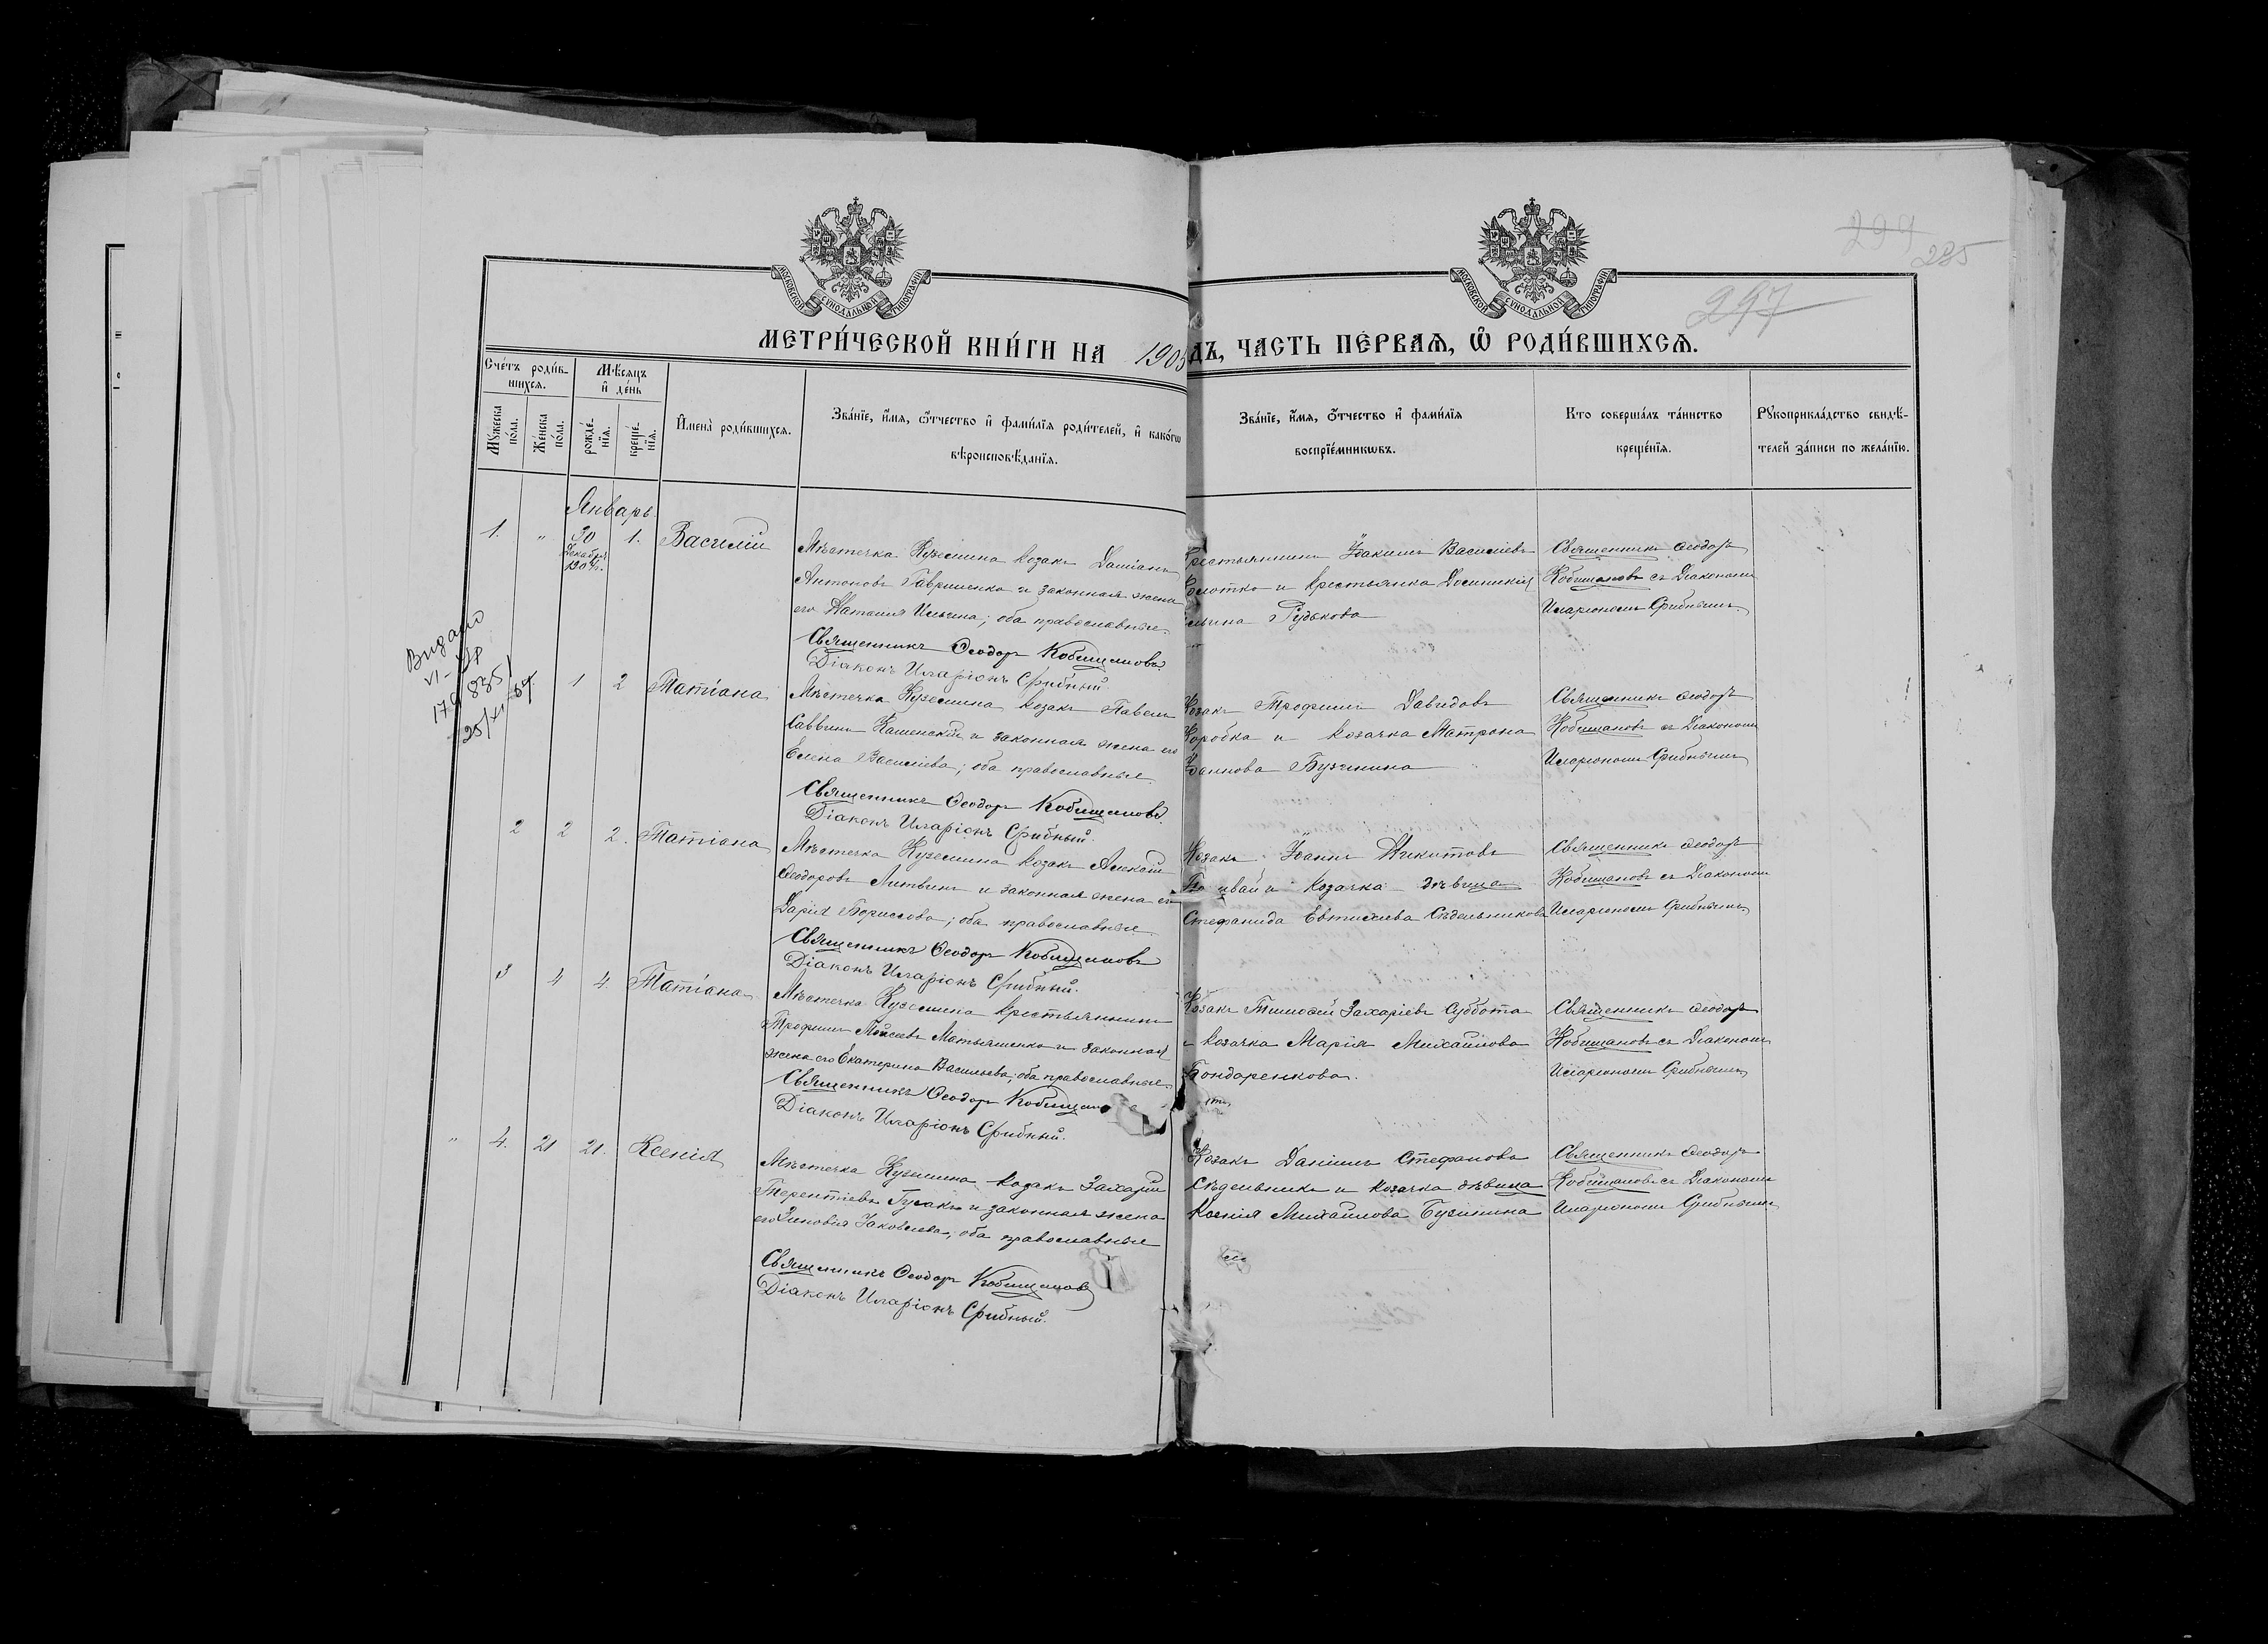 МОСКОВСКОЙ СУНОДАЛЬНОЙ ТИПОГРАФІИ
МОСКОВСКОЙ СУНОДАЛЬНОЙ ТИПОГРАФІИ
299
285
297
МЕТРИ́ЧЕСКОЙ КНИ́ГИ НА 1905
ДЪ, ЧАСТЬ ПЕ́РВАЯ, Ѿ РОДИ́ВШИХСЯ.
Сче́тъ роди́вшихся.
Му́жеска по́ла.
Же́нска по́ла.
Мѣ́сяцъ и де́нь
рожде́нїя.
креще́нїя.
Имена̀ роди́вшихся.
Зва́нїе, и́мя, о́тчество и фами́лїя роди́телей, и како́гѡ
вѣроисповѣ́данїя.
Зва́нїе, и́мя, о́тчество и фами́лїя
воспрїе́мникѡвъ.
Кто соверша́лъ та́инство
креще́нїя.
Рукоприкла́дство свидѣ́-
телей за́писи по жела́нїю.
Январь.
1. " 30 Декабря 1904г. 1. Василій
Мѣстечка Куземина козакъ Даміанъ
Антоновъ Гавришенко и законная жена
его Наталія Ильина; оба православные.
Священникъ Ѳеодоръ Кобищановъ.
Діаконъ Иларіонъ Срибный.
Крестьянинъ Іоакимъ Василіевъ
Болотко и крестьянка Домникія
Ильина Рудькова
Священникъ Ѳеодоръ
Кобищановъ съ Діакономъ
Иларіономъ Срибнымъ.
Видано
VI-УР
25/XI-
1 2 Татіана
Мѣстечка Куземина козакъ Павелъ
Саввинъ Кашенскій и законная жена его
Елена Василіева; оба православные
Священникъ Ѳеодоръ Кобищановъ.
Діаконъ Иларіонъ Срибный.
Козакъ Трофимъ Давидовъ
Коробка и козачка Матрона
Іоаннова Бузинина
Священникъ Ѳеодоръ
Кобищановъ съ Діакономъ
Иларіономъ Срибнымъ
2 2 2. Татіана
Мѣстечка Куземина козакъ Алексій
Ѳеодоровъ Литвинъ и законная жена его
Дарія Борисова; оба православные
Священникъ Ѳеодоръ Кобищановъ
Діаконъ Иларіонъ Срибный.
Козакъ Іоаннъ Никитовъ
и козачка дѣвица
Стефанида Евтихіева Сѣдельникова
Священникъ Ѳеодоръ
Кобищановъ съ Діакономъ
Иларіономъ Срибнымъ
3 4 4. Татіана
Мѣстечка Куземина крестьянинъ
Трофимъ Моѵсеевъ Матьяшенко и законная
жена его Екатерина Васильева; оба православные.
Священникъ Ѳеодоръ
Діаконъ Иларіонъ Срибный.
Козакъ Тимоѳей Захаріевъ Суббота
и козачка Марія Михайлова
Бондаренкова.
Священникъ Ѳеодоръ
Кобищановъ съ Діакономъ
Иларіономъ Срибнымъ
" 4. 21 21. Ксенія
Мѣстечка Куземина козакъ Захарій
Терентіевъ Гусакъ и законная жена
его Зиновія Іаковлева; оба православные
Священникъ Ѳеодоръ Кобищановъ
Діаконъ Иларіонъ Срибный.
Козакъ Даніилъ Стефановъ
Сѣдельникъ и козачка дѣвица
Ксенія Михайлова Бузинина
Священникъ Ѳеодоръ
Кобищановъ съ Діакономъ
Иларіономъ Срибнымъ